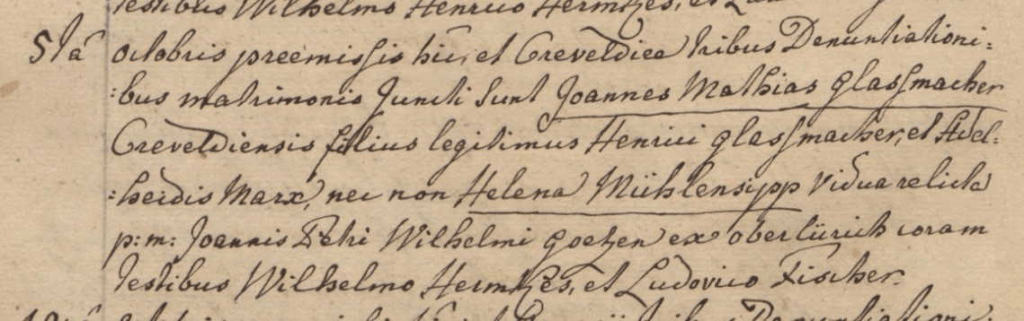 testibus Wilhelmo Henrico Hermkes, et
5ta octobris praemissis hic, et Creveldiae tribus Denuntiationi=
=bus matrimonio Juncti Sunt Joannes Mathias glassmacher
Creveldiensis filius legitimus Henrici glassmacher, et Adel=
=heidis Marx, nec non Helena Mühlensipp Vidua relicta
p: m: Joannis Petri Wilhelmi goetzen ex oberlürich coram
testibus Wilhelmo Hermkes, et Ludovico Fischer.
tribus Denuntiationi=